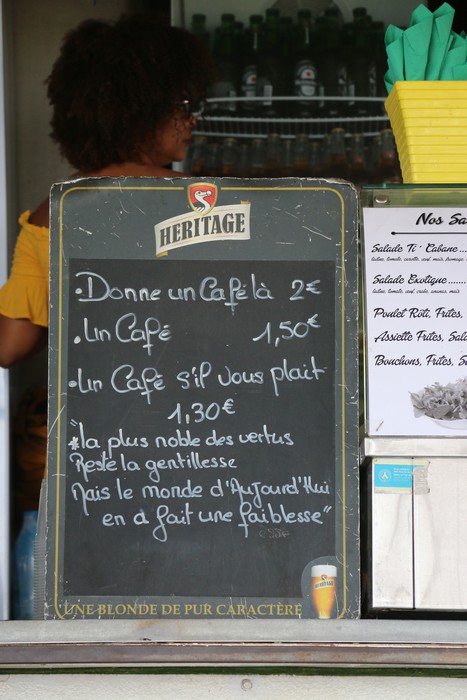 HERITAGE
• Donne un Café là 2€
• Un Café 1,50€
• Un Café s'il vous plait
1,30€
*la plus noble des vertus
Reste la gentillesse
Mais le monde d'Aujourd'Hui
en a fait une faiblesse"
UNE BLONDE DE PUR CARACTÈRE
Nos Sa
Salade Ti' Cabane......
Salade Exotique.......
Poulet Rôti, Frites,
Assiette Frites, Sala
Bouchons, Frites, S